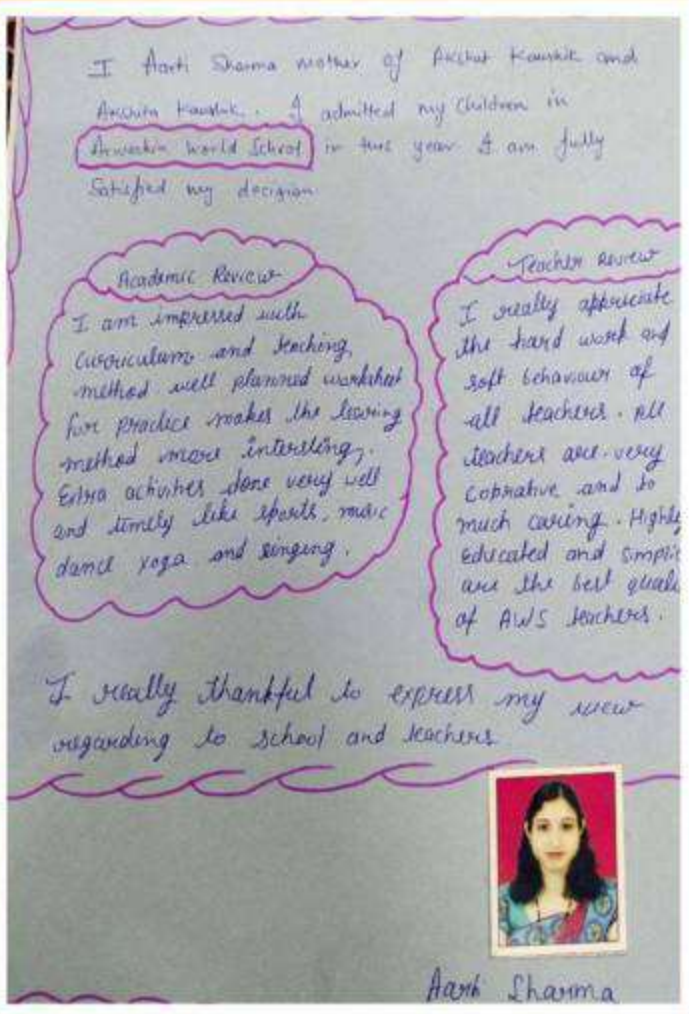 I Aarti Sharma mother of Akshat Kaushik and
Akshita Kaushik. I admitted my children in
World School in this year I am fully
Satisfied my decision
Academic Review
I am impressed with
curriculum and teaching
method well planned worksheet
for practice makes the learing
method more intersting.
Extra activities done very well
and timely like sports, music
dance yoga and singing.
Teacher Review
I really appriciate
the hard work and
soft behaviour of
all teachers. All
teachers are very
coprative and to
much caring. Highly
educated and simplic
are the best quali
of AWS teachers.
I really thankful to express my view
regarding to school and teachers
Aarti Sharma